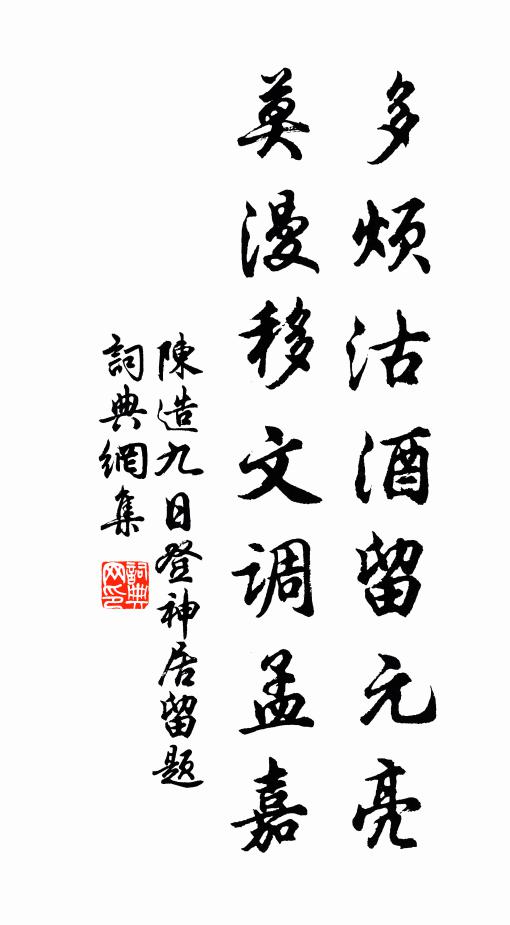 多烦沽酒留元亮
莫漫移文调孟嘉
陳造九日登神居留題
詞典網集
詞典网印